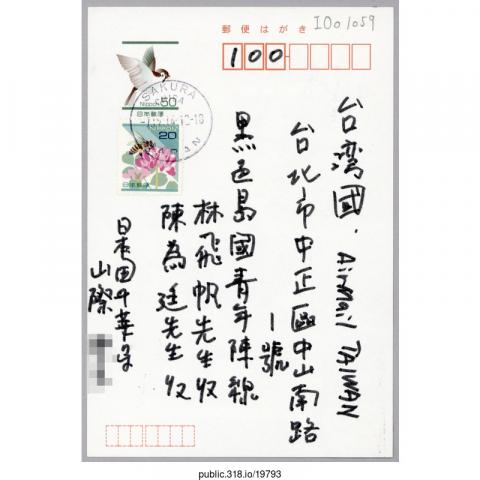 郵便はがき
I001059
100
Nippon 50
日本郵便
SAKURA
CHIBA
NIPPON 20
日本郵便
台湾國. AirMail TAIWAN
台北市中正區中山南路
1號
黒色島國青年陳線
林飛帆先生收
陳為廷先生收
日本
山際
public.318.io/19793